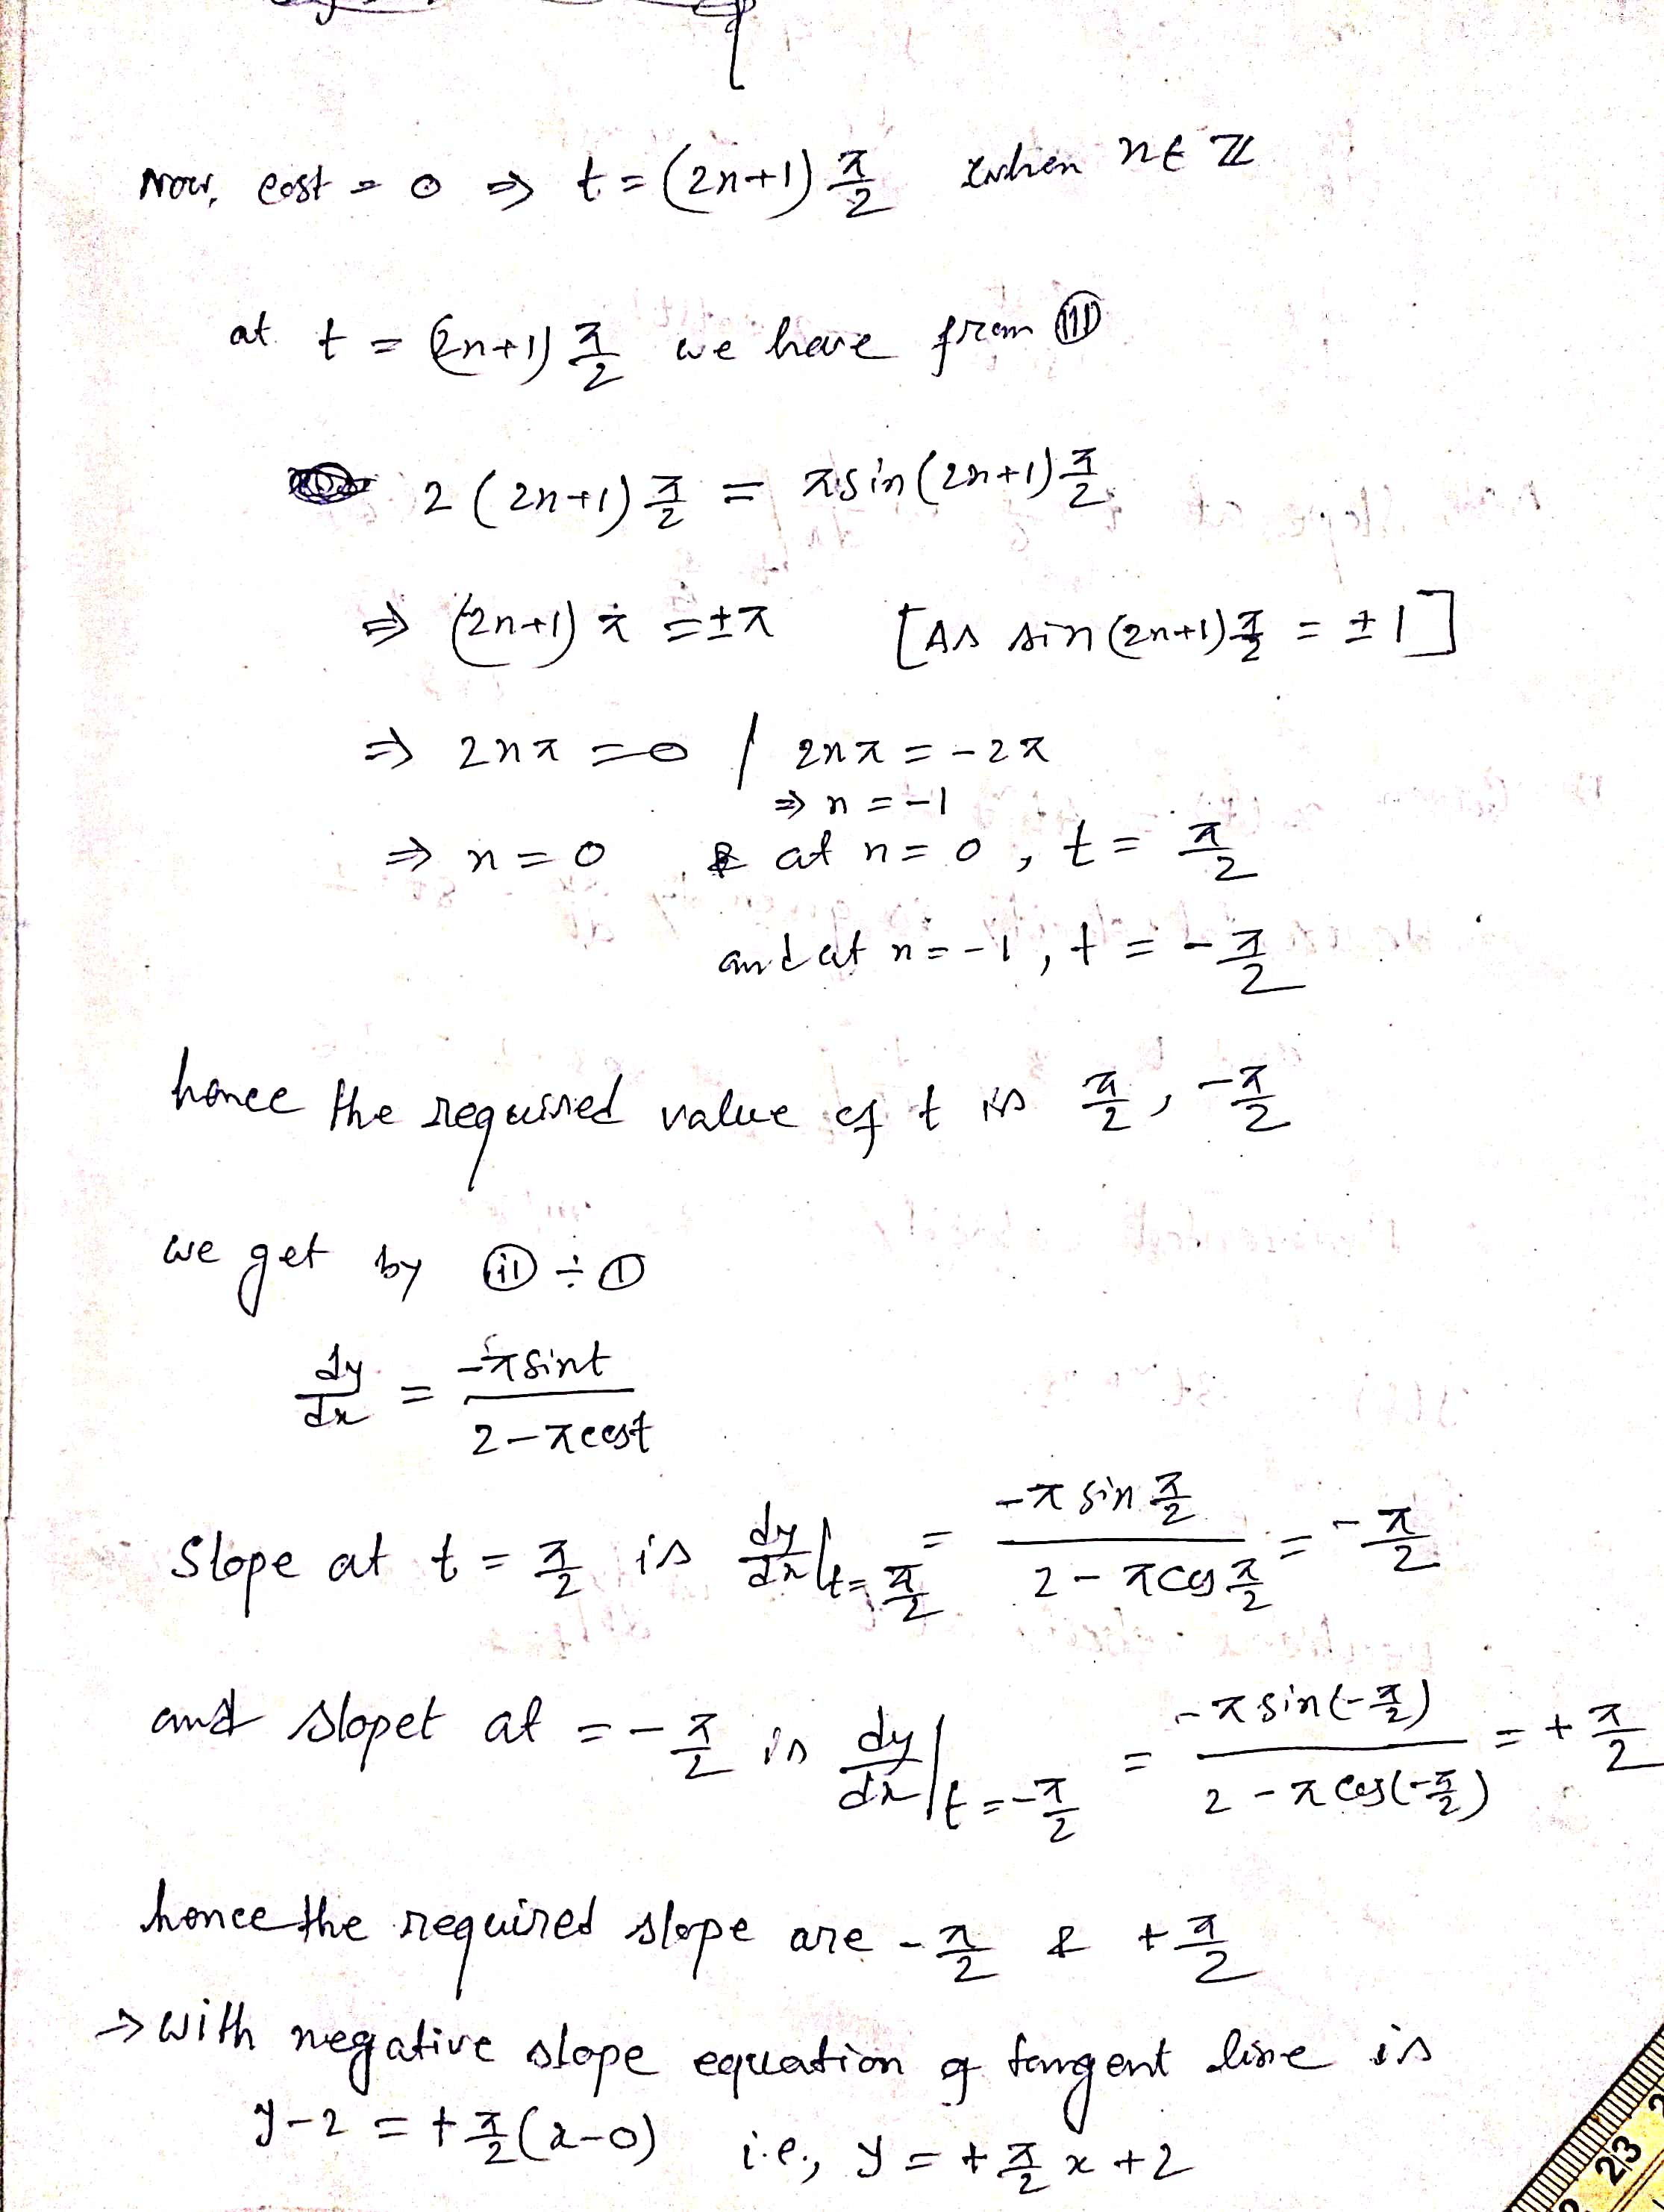 Now, cost = 0 ⇒ t = (2n+1) π/2 when n ∈ ℤ
at t = (2n+1) π/2 we have from (III)
2 (2n+1) π/2 = π sin (2n+1) π/2
⇒ (2n+1) π = ±π [As sin (2n+1) π/2 = ±1]
⇒ 2nπ = 0 / 2nπ = -2π
⇒ n = -1
⇒ n = 0 & at n = 0, t = π/2
and at n = -1, t = -π/2
hence the required value of t is π/2, -π/2
we get by (ii) ÷ (I)
dy/dx = -π sint / 2 - π cost
Slope at t = π/2 is dy/dx|t=π/2 = -π sin π/2 / 2 - π cos π/2 = -π/2
and slopet at = -π/2 is dy/dx|t=-π/2 = -π sin(-π/2) / 2 - π cos(-π/2) = +π/2
hence the required slope are -π/2 & +π/2
→ with negative slope equation of tangent line is
y-2 = +π/2 (x-0) i.e., y = +π/2 x + 2
23